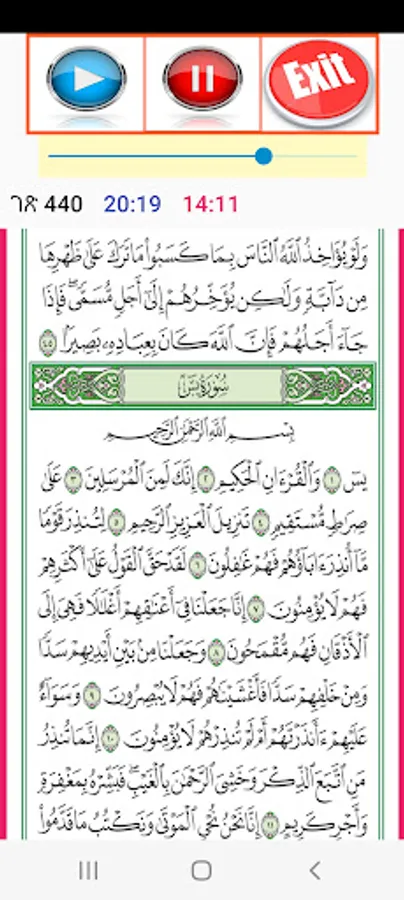 Exit
ገጽ 440 20:19 14:11
وَلَوْ يُؤَاخِذُ ٱللَّهُ ٱلنَّاسَ بِمَا كَسَبُوا۟ مَا تَرَكَ عَلَىٰ ظَهْرِهَا
مِن دَآبَّةٍ وَلَٰكِن يُؤَخِّرُهُمْ إِلَىٰٓ أَجَلٍ مُّسَمًّى ۖ فَإِذَا
جَآءَ أَجَلُهُمْ فَإِنَّ ٱللَّهَ كَانَ بِعِبَادِهِۦ بَصِيرًۢا ٤٥
سُورَةُ يسٓ
بِسْمِ ٱللَّهِ ٱلرَّحْمَٰنِ ٱلرَّحِيمِ
يسٓ ١ وَٱلْقُرْءَانِ ٱلْحَكِيمِ ٢ إِنَّكَ لَمِنَ ٱلْمُرْسَلِينَ ٣ عَلَىٰ
صِرَٰطٍ مُّسْتَقِيمٍ ٤ تَنزِيلَ ٱلْعَزِيزِ ٱلرَّحِيمِ ٥ لِتُنذِرَ قَوْمًا
مَّآ أُنذِرَ ءَابَآؤُهُمْ فَهُمْ غَٰفِلُونَ ٦ لَقَدْ حَقَّ ٱلْقَوْلُ عَلَىٰٓ أَكْثَرِهِمْ
فَهُمْ لَا يُؤْمِنُونَ ٧ إِنَّا جَعَلْنَا فِىٓ أَعْنَٰقِهِمْ أَغْلَٰلًا فَهِىَ إِلَى
ٱلْأَذْقَانِ فَهُم مُّقْمَحُونَ ٨ وَجَعَلْنَا مِنۢ بَيْنِ أَيْدِيهِمْ سَدًّا
وَمِنْ خَلْفِهِمْ سَدًّا فَأَغْشَيْنَٰهُمْ فَهُمْ لَا يُبْصِرُونَ ٩ وَسَوَآءٌ
عَلَيْهِمْ ءَأَنذَرْتَهُمْ أَمْ لَمْ تُنذِرْهُمْ لَا يُؤْمِنُونَ ١٠ إِنَّمَا تُنذِرُ
مَنِ ٱتَّبَعَ ٱلذِّكْرَ وَخَشِىَ ٱلرَّحْمَٰنَ بِٱلْغَيْبِ ۖ فَبَشِّرْهُ بِمَغْفِرَةٍ
وَأَجْرٍ كَرِيمٍ ١١ إِنَّا نَحْنُ نُحْىِ ٱلْمَوْتَىٰ وَنَكْتُبُ مَا قَدَّمُوا۟